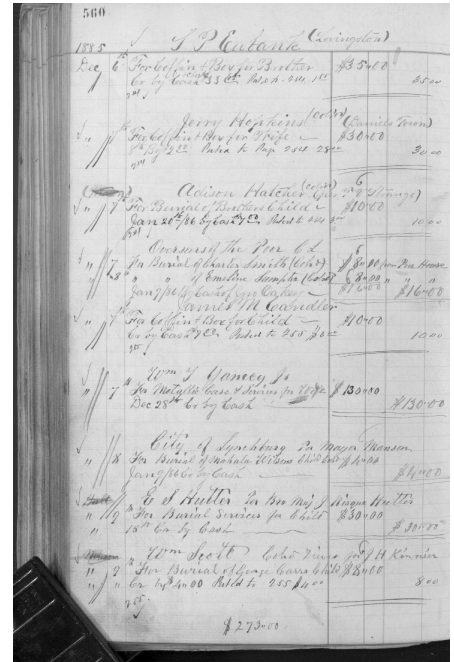 560
1885 S P Eubank (Livingston)
Dec 6th For Coffin & Box for Brother $35.00
Cr by Cash 35.00
Jerry Hopkins (Col'd) (Daniels Town)
" 7th For Coffin & Box for Wife $30.00
By 2.00 Posted to Page 254 28.00 30.00
Adison Hatcher (Col'd)
" 7 For Burial of Brothers Child $10.00
Jan 20th/86 by Cash 7.00 Posted to 254 10.00
Overseers of the Poor Cd
" 7 For Burial of Charles Smith (Col'd) $8.00 from Poor House
" 8 " " of Emeline Sampter (Col'd) $8.00 " " "
Jan 9/86 by Cash from Oakey $16.00 $16.00
James M Candler
" 7th For Coffin & Box for Child $10.00
Cr by Cash 7.00 Posted to 255 $3.00 10.00
Wm T Yancey Jr
" 7 For Metallic Case & Services for Wife $130.00
Dec 28th Cr by Cash $130.00
City of Lynchburg Per Mayor Manson
" 8 For Burial of Mahala Wilsons Child Col'd $4.00
Jan 9/86 Cr by Cash $4.00
E S Hutter Per Bro Maj J Risque Hutter
" 9 For Burial Services for Child $30.00
18th Cr by Cash $30.00
Wm Scott Col'd J H
" 9 For Burial of George Carrs Child $8.00
" " Cr by $4.00 Posted to 255 $4.00 8.00
$273.00